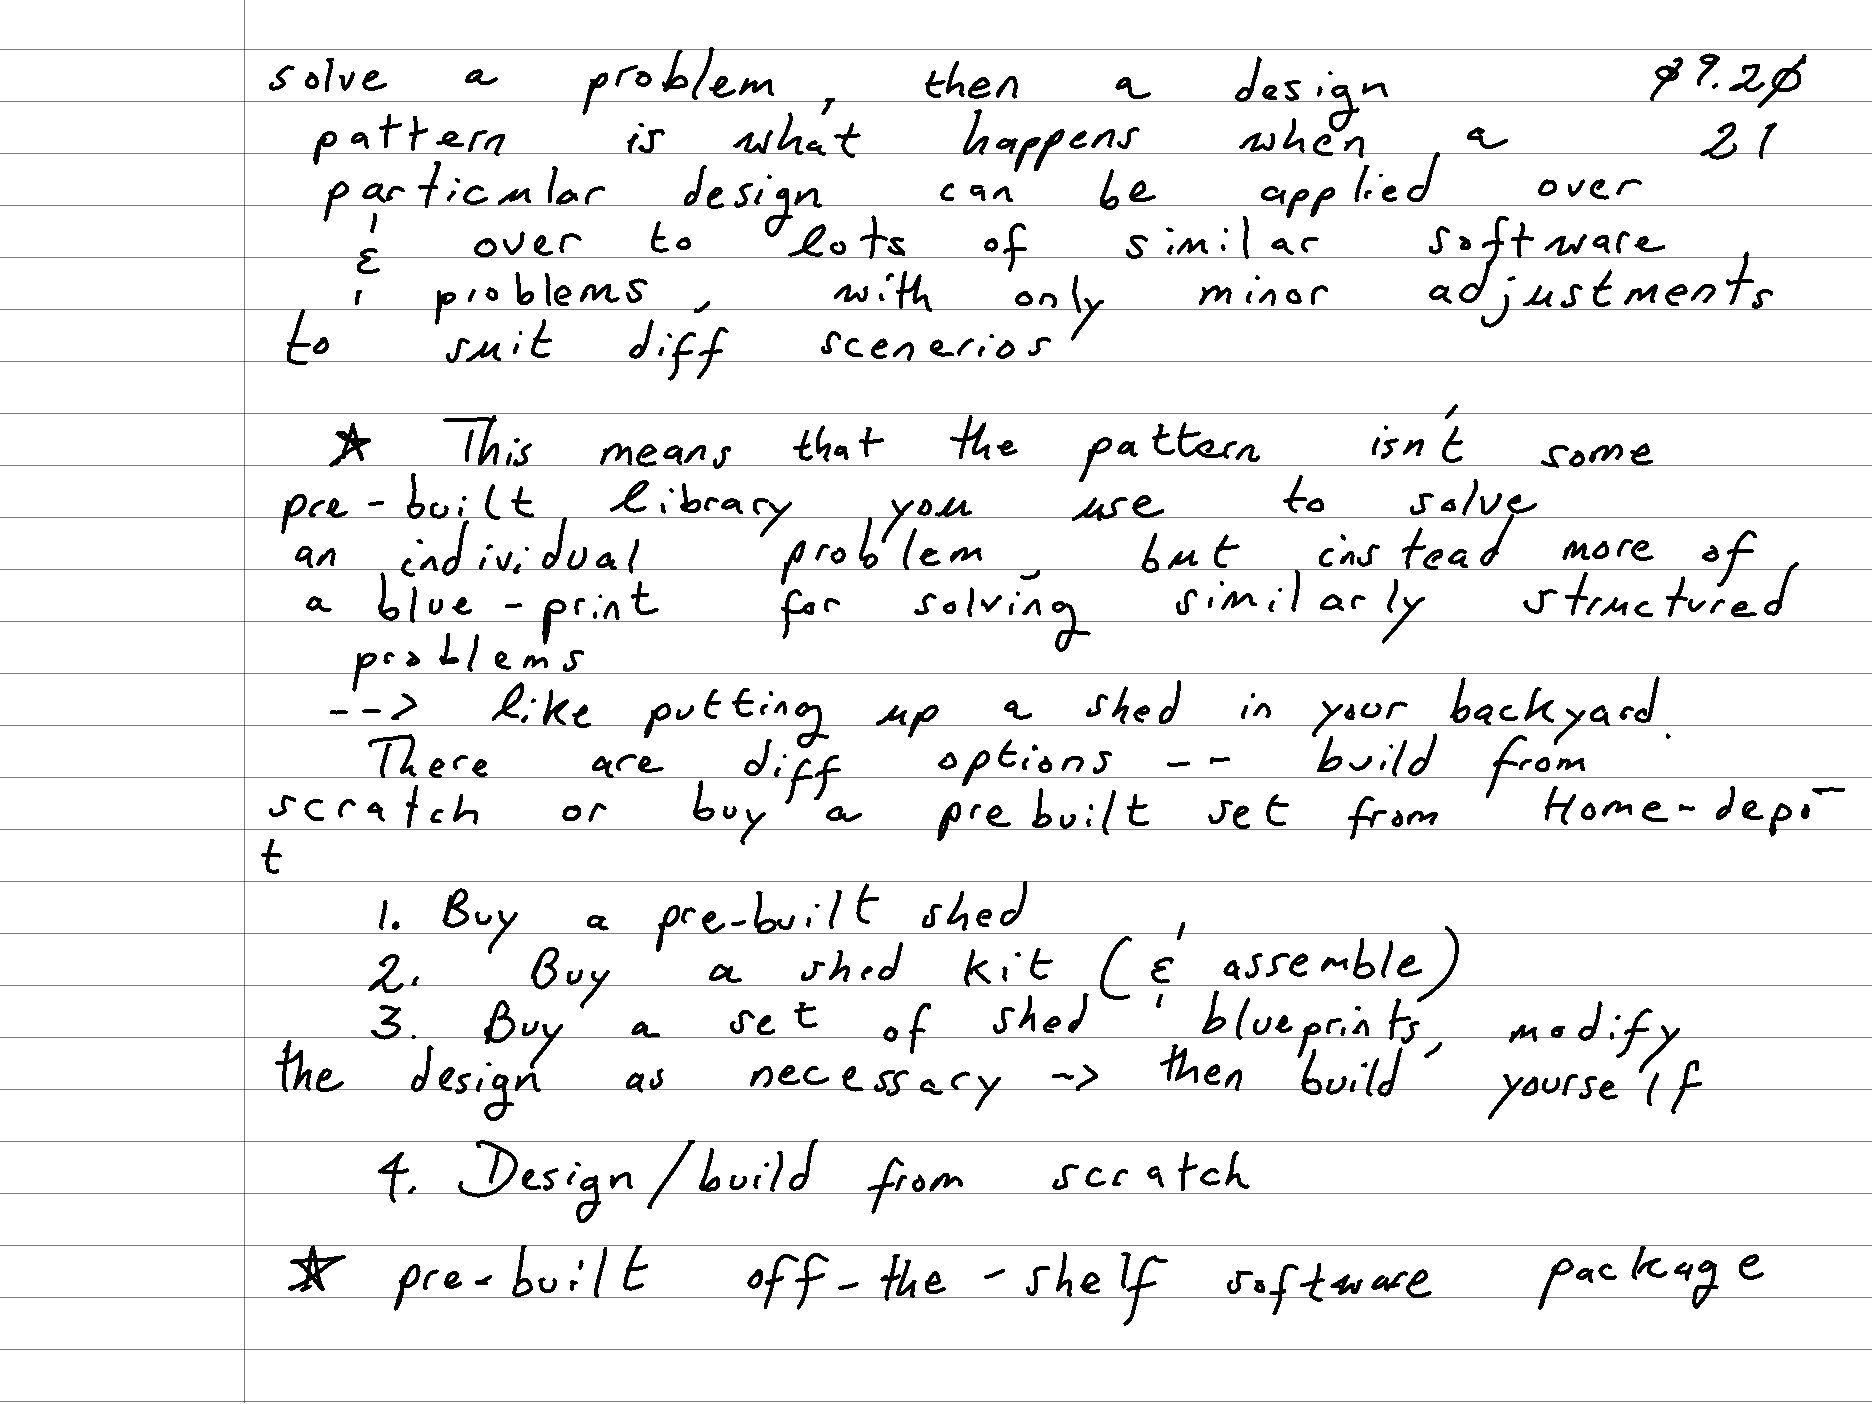 solve a problem, then a design 09.20
pattern is what happens when a 21
particular design can be applied over
& over to lots of similar software
problems, with only minor adjustments
to suit diff scenerios
☆ This means that the pattern isn't some
pre-built library you use to solve
an individual problem, but instead more of
a blue-print for solving similarly structured
problems
--> like putting up a shed in your backyard.
There are diff options -- build from
scratch or buy a prebuilt set from Home-depo-
t
1. Buy a pre-built shed
2. Buy a shed kit (& assemble)
3. Buy a set of shed blueprints, modify
the design as necessary -> then build yourself
4. Design/build from scratch
☆ pre-built off-the-shelf software package